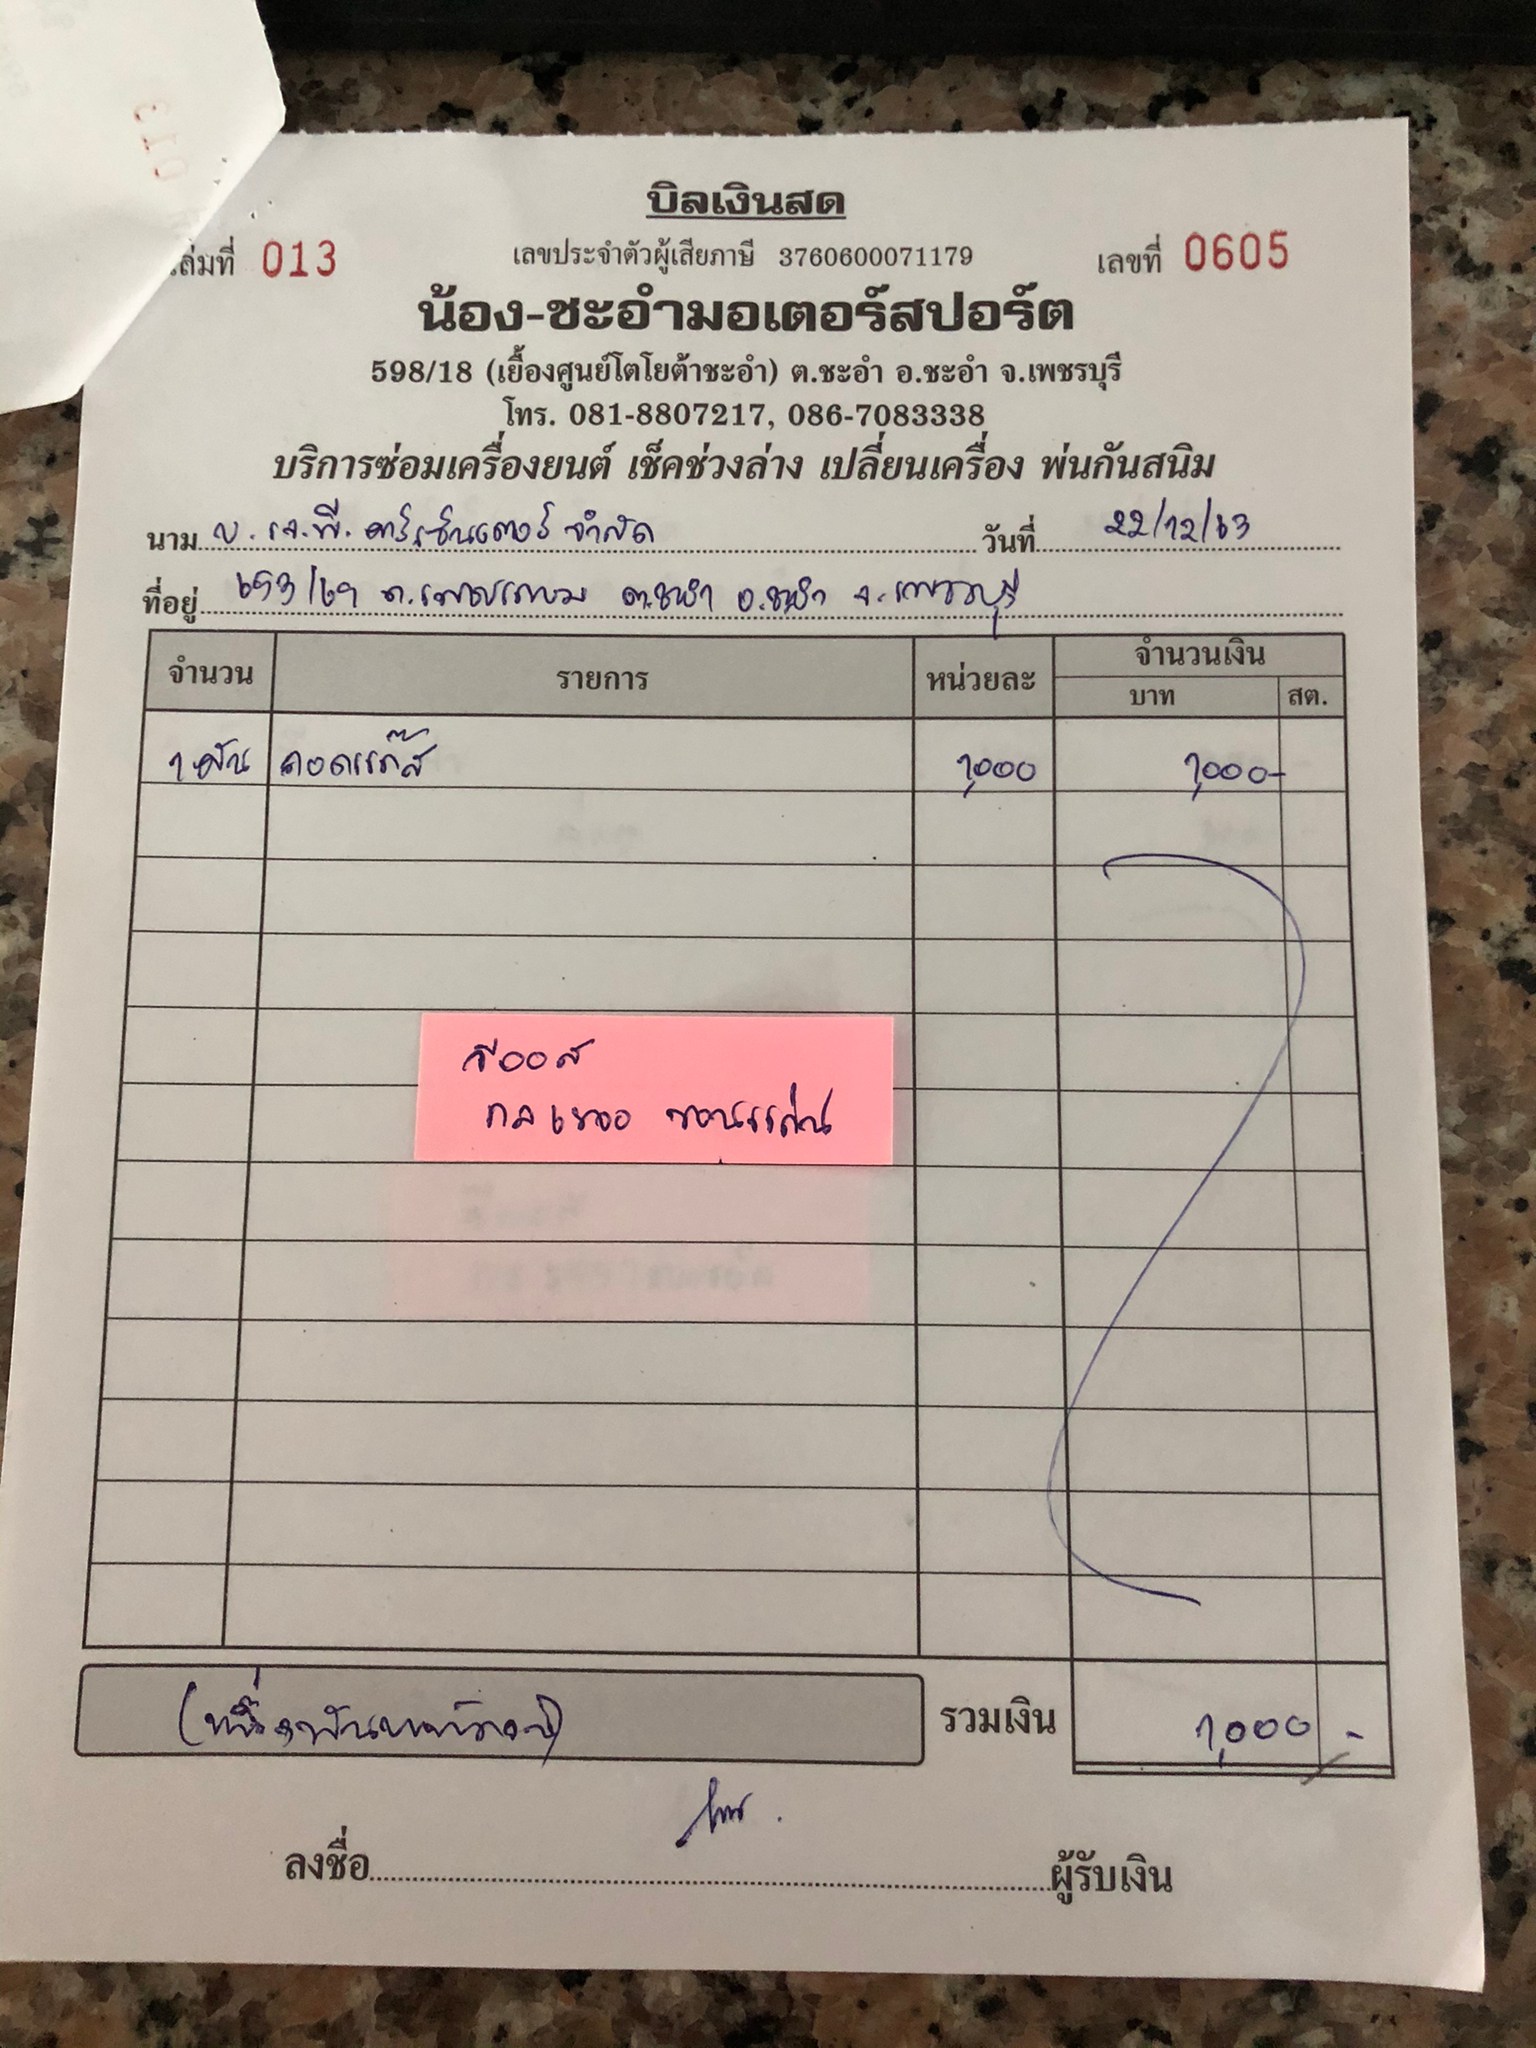 บิลเงินสด
เล่มที่ 013 เลขประจำตัวผู้เสียภาษี 3760600071179 เลขที่ 0605
น้อง-ชะอำมอเตอร์สปอร์ต
598/18 (เยื้องศูนย์โตโยต้าชะอำ) ต.ชะอำ อ.ชะอำ จ.เพชรบุรี
โทร. 081-8807217, 086-7083338
บริการซ่อมเครื่องยนต์ เช็คช่วงล่าง เปลี่ยนเครื่อง พ่นกันสนิม
นาม บ. เจ.พี. คาร์เซ็นเตอร์ จำกัด วันที่ 22/12/63
ที่อยู่ 653/69 ถ.เพชรเกษม ต.ชะอำ อ.ชะอำ จ.เพชรบุรี
จำนวน รายการ หน่วยละ จำนวนเงิน
บาท สต.
1 คัน ถอดแก๊ส 1,000 1,000-
วีออส
กล
(หนึ่งพันบาทถ้วน) รวมเงิน 1,000 -
ลงชื่อ ผู้รับเงิน